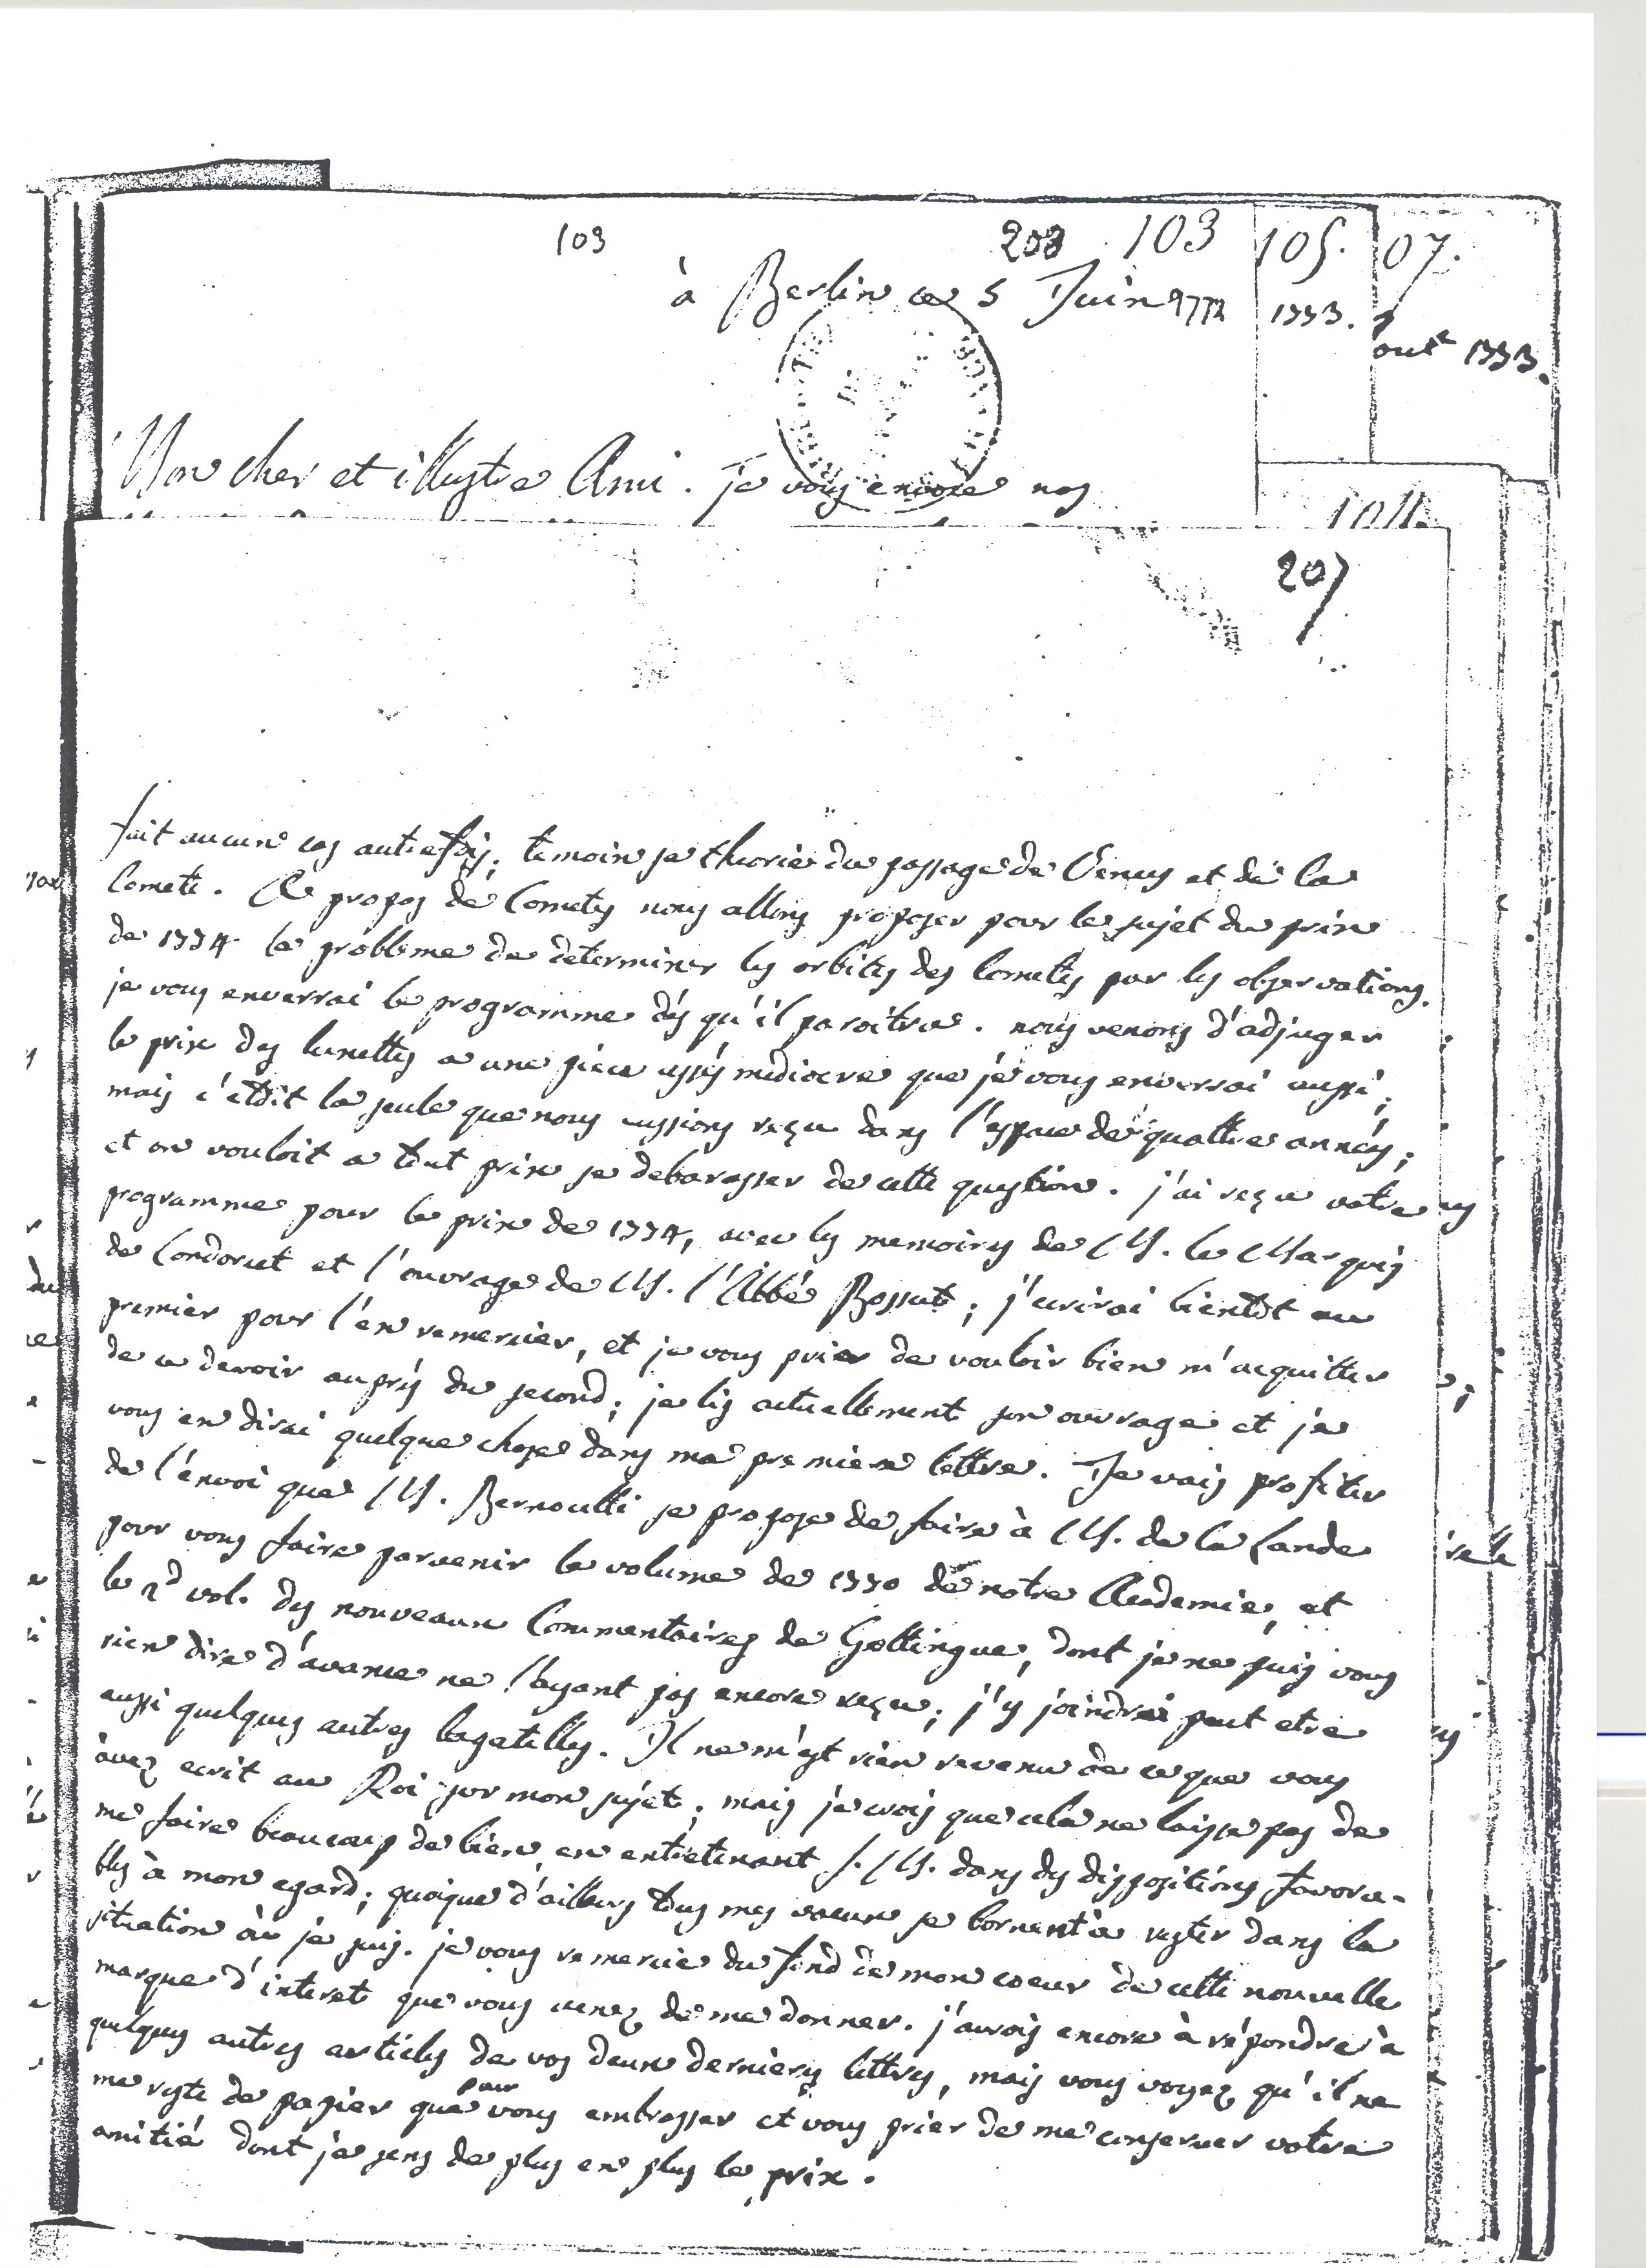 103 208 103 105. 07.
à Berlin ce 5 Juin 1773. oust 1773.
Mon cher et illustre Ami. Je vous envoie nos
104
207
fait aucun cas autrefois; temoin sa theorie du passage de Venus et de la
Comete. A propos de Cometes nous allons proposer pour le sujet du prix
de 1774 le probleme de determiner les orbites des Cometes par les observations.
je vous enverrai le programme dés qu'il paroitra. nous venons d'adjuger
le prix des lunettes a une piéce assés mediocre que je vous enverrai aussi;
mais c'etoit la seule que nous eussions reçu dans l'espace de quattre années;
et on vouloit a tout prix se debarasser de cette question. j'ai reçu votre
programme pour le prix de 1774, avec les memoires de M. le Marquis
de Condorcet et l'ouvrage de M. l'Abbé Bossut; j'ecrirai bientot au
premier pour l'en remercier, et je vous prie de vouloir bien m'acquitter
de ce devoir auprès du second; je lis actuellement son ouvrage et je
vous en dirai quelque chose dans ma premiere lettre. Je vais profiter
de l'envoi que M. Bernoulli se propose de faire à M. de la Lande
pour vous faire parvenir le volume de 1770 de notre Academie, et
le 2d vol. des nouveaux Commentaires de Gottingue, dont je ne puis vous
rien dire d'avance ne l'ayant pas encore reçu; j'y joindrai peut etre
aussi quelques autres bagatelles. Il ne m'est rien revenu de ce que vous
avez ecrit au Roi sur mon sujet; mais je crois que cela ne laisse pas de
me faire beaucoup de bien en entretenant S. M. dans des dispositions favora-
bles à mon egard; quoique d'ailleurs tous mes voeux se bornent à rester dans la
situation où je suis. je vous remercie du fond de mon coeur de cette nouvelle
marque d'interet que vous venez de me donner. j'aurois encore à répondre à
quelques autres articles de vos deux dernieres lettres, mais vous voyez qu'il ne
me reste de papier que pour vous embrasser et vous prier de me conserver votre
amitié dont je sens de plus en plus le prix.